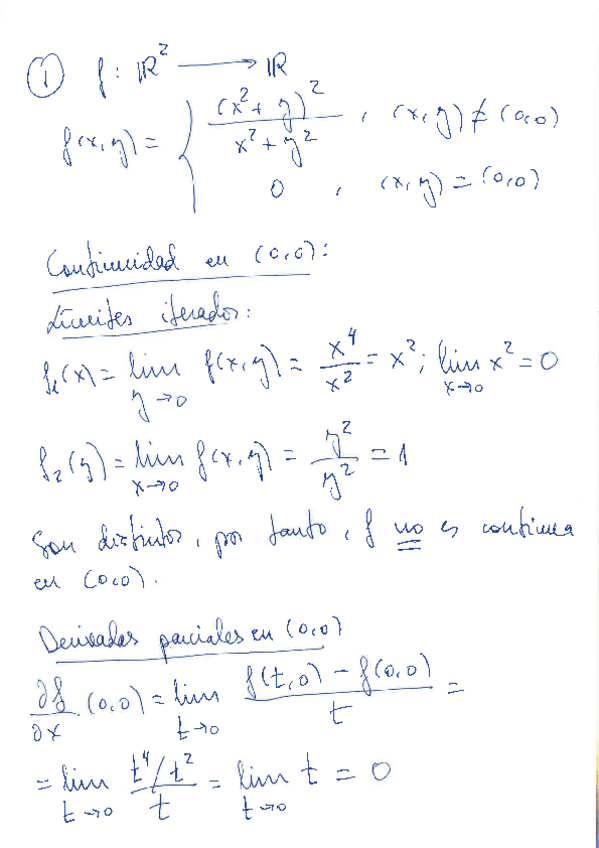 ① f : ℝ² ⟶ ℝ
f(x,y) = { (x² + y)² / (x² + y²) , (x,y) ≠ (0,0)
0 , (x,y) = (0,0)
Continuidad en (0,0):
Límites iterados:
f₁(x) = lim_{y→0} f(x,y) = x⁴/x² = x²; lim_{x→0} x² = 0
f₂(y) = lim_{x→0} f(x,y) = y²/y² = 1
Son distintos, por tanto, f no es continua
en (0,0).
Derivadas parciales en (0,0)
∂f/∂x (0,0) = lim_{t→0} (f(t,0) − f(0,0))/t =
= lim_{t→0} (t⁴/t²)/t = lim_{t→0} t = 0